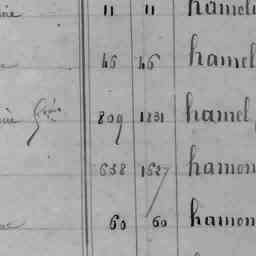 11 11 hameli
46 46 hamel
809 1231 hamel
638 1527 hamon
60 60 hamon